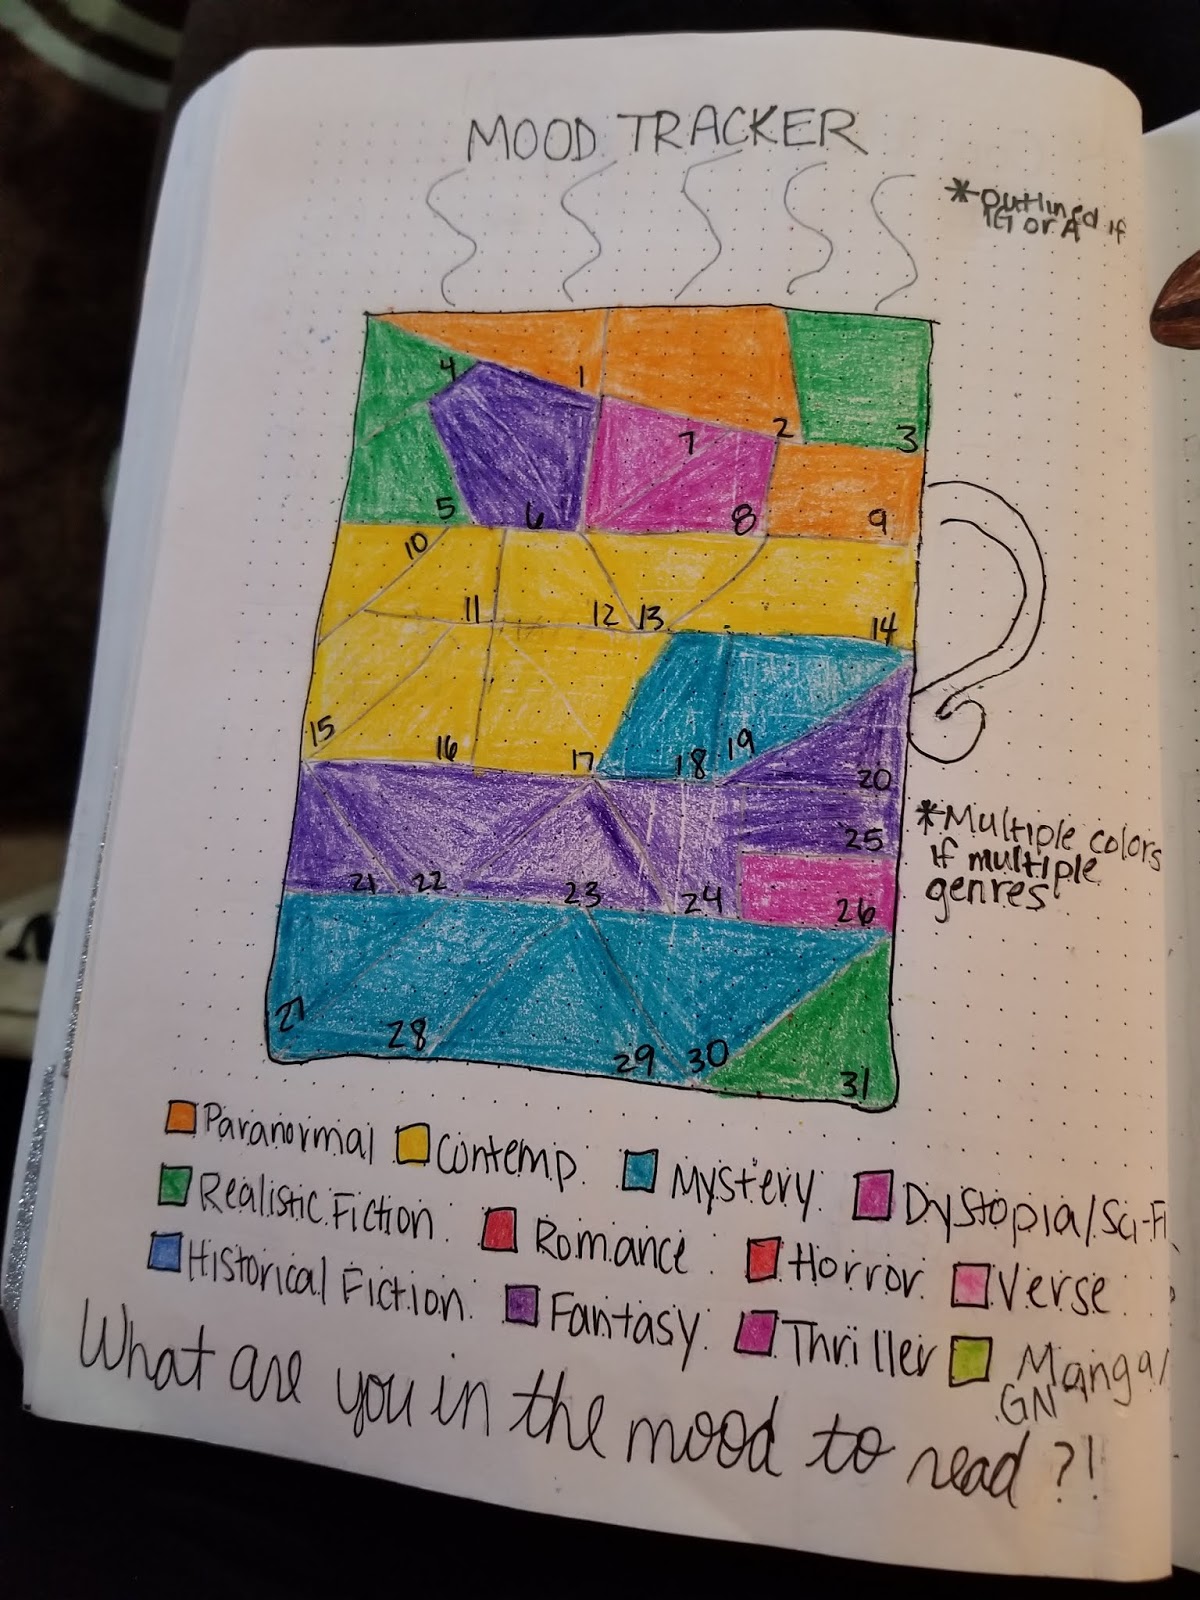 MOOD TRACKER
*outlined if
G or A
4
1
2
3
7
5
6
8
9
10
11
12
13
14
15
16
17
18
19
20
25
21
22
23
24
26
27
28
29
30
31
*Multiple colors
if multiple
genres
Paranormal Contemp. Mystery Dystopia/Sci-Fi
Realistic Fiction Romance Horror Verse
Historical Fiction Fantasy Thriller Manga/
GN
What are you in the mood to read?!